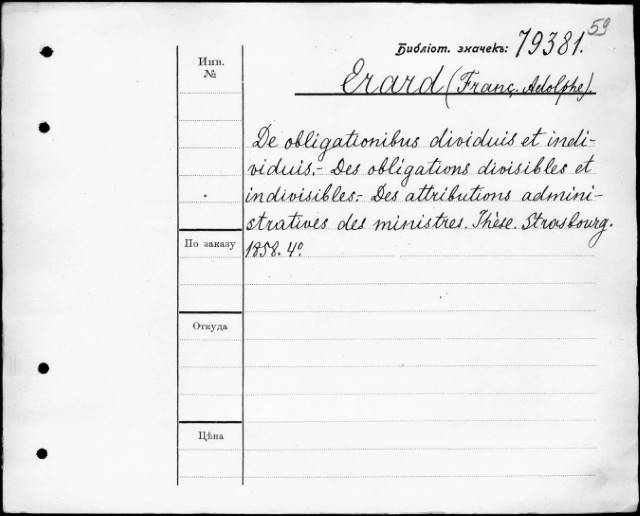 59
Библіот. значекъ: 79381.
Инв.
№
Erard (Franç. Adolphe).
De obligationibus dividuis et indi-
viduis.- Des obligations divisibles et
indivisibles.- Des attributions admini-
stratives des ministres. Thèse. Strasbourg.
По заказу
1858. 4º
Откуда
Цѣна